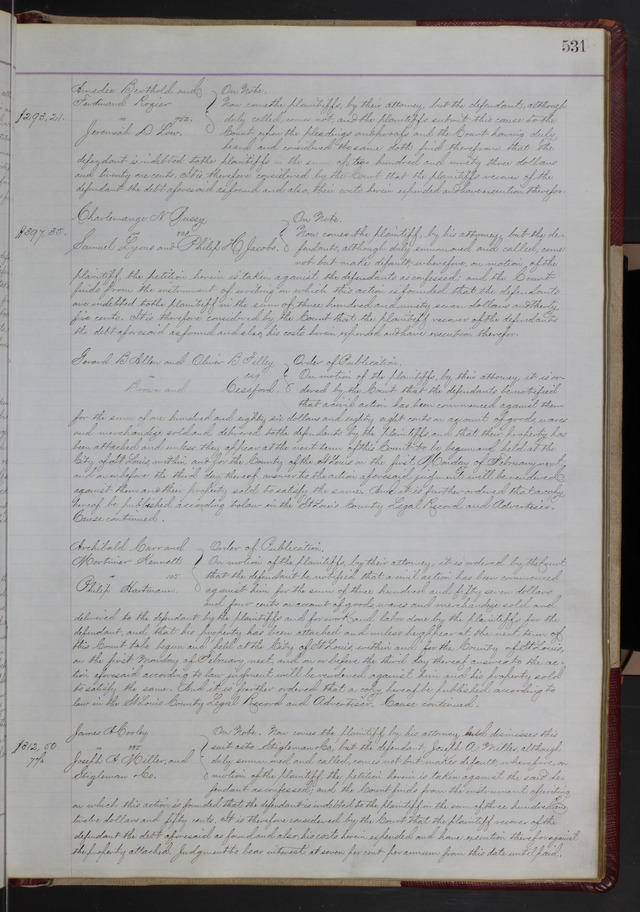 531
Amedee Berthold and } On Note.
Ferdinand Rozier } Now come the plaintiffs, by their attorney, but the defendant, although
$293,21. vs. } duly called, comes not, and the plaintiffs submit this cause to the
Jeremiah D Low. } Court, upon the pleadings and proofs and the Court having duly
heard and considered the same doth find therefrom that the
defendant is indebted to the plaintiffs in the sum of two hundred and ninety three dollars
and twenty one cents. It is therefore considered by the Court that the plaintiffs recover of the
defendant the debt aforesaid as found and also, their costs herein expended and have execution therefor.
Charlemange N Pussy } On Note.
$397.35. vs } Now comes the plaintiff, by his attorney, but the de-
Samuel Lyons and Philip H Jacobs. } fendants, although duly summoned and called, come
not but make default, wherefore, on motion, of the
plaintiff, the petition herein is taken against the defendants as confessed; and the Court
finds from the instrument of writing on which this action is founded that the defendants
are indebted to the plaintiff in the sum of three hundred and ninety seven dollars and thirty
five cents. It is therefore considered by the Court that the plaintiff recover of the defendants
the debt aforesaid as found and also, his costs herein expended and have execution therefor.
Gerard B Allen and Oliver B Filley } Order of Publication.
vs } On motion of the plaintiffs, by their attorney, it is or-
Brown and Cessford. } dered by the Court that the defendants be notified
that a civil action has been commenced against them
for the sum of one hundred and eighty six dollars and eighty eight cents on account of goods, wares
and merchandize sold and delivered to the defendants by the plaintiffs, and that their property has
been attached and unless they appear at the next term of this Court to be begun and held at the
City of St Louis, within and for the County of St Louis on the first Monday of February next,
and on or before the third day thereof answer to the action aforesaid, judgment will be rendered
against them and their property sold to satisfy the same. And it is further ordered that a copy
hereof be published according to law in the St Louis County Legal Record and Advertiser.
Cause continued.
Archibald Carr and } Order of Publication.
Mortimer Kennett } On motion of the plaintiffs, by their attorney, it is ordered by the Court
vs } that the defendant be notified that a civil action has been commenced
Philip Hartmann. } against him for the sum of three hundred and fifty seven dollars
and four cents on account of goods, wares and merchandize sold and
delivered to the defendant by the plaintiffs and for work and labor done by the plaintiffs for the
defendant, and that his property has been attached and unless he appear at the next term of
this Court to be begun and held at the City of St Louis, within and for the County of St Louis,
on the first Monday of February next, and on or before the third day thereof answer to the ac-
tion aforesaid according to law judgment will be rendered against him and his property sold
to satisfy the same. And it is further ordered that a copy hereof be published according to
law in the St Louis County Legal Record and Advertiser. Cause continued.
James A Corley } On Note. Now comes the plaintiff by his attorney, and dismisses this
$312,50 vs } suit as to Stigleman & Co, but the defendant, Joseph A. Miller although
7% Joseph A Miller, and } duly summoned and called, comes not but makes default, wherefore, on
Stigleman & Co. } motion of the plaintiff, the petition herein is taken against the said de-
fendant as confessed; and the Court finds from the instrument of writing
on which this action is founded that the defendant is indebted to the plaintiff in the sum of three hundred and
twelve dollars and fifty cents. It is therefore considered by the Court that the plaintiff recover of the
defendant the debt aforesaid as found and also his costs herein expended and have execution therefor against
the property attached. Judgment to bear interest at seven per cent per annum from this date until paid.